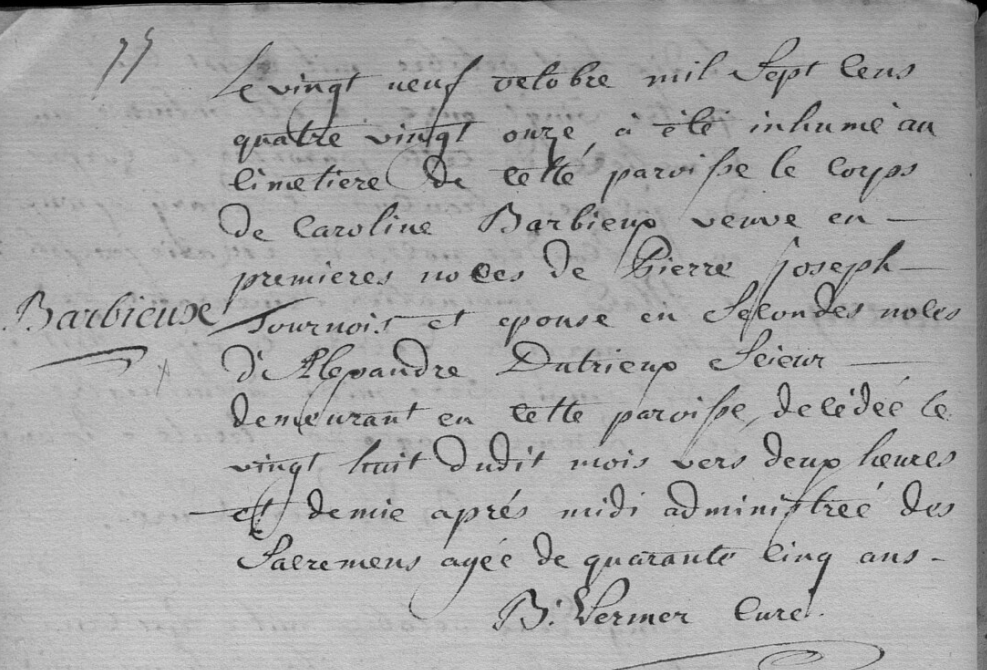 75
Le vingt neuf octobre mil Sept Cens
quatre vingt onze a été inhumé au
Cimetiere de Cette paroisse le Corps
de Caroline Barbieux veuve en
premieres noces de Pierre Joseph
Barbieux
Tournois et epouse en Secondes noces
d'Alexandre Dutrieux Scieur
demeurant en Cette paroisse, decédée le
vingt huit dudit mois vers deux heures
et demie aprés midi administreé des
Sacremens ageé de quarante Cinq ans -
B: Vermer Curé.